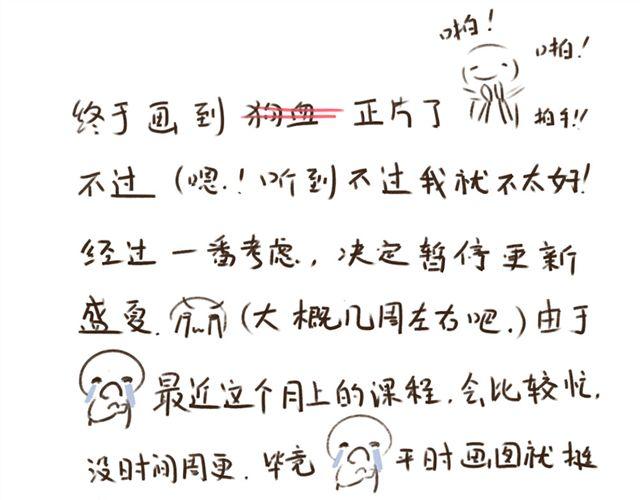 啪!
啪!
终于画到 狗血 正片了 拍手!!
不过 (嗯.! 听到不过我就不太好!
经过一番考虑, 决定暂停更新
盛夏. (大概几周左右吧.) 由于
最近这个月上的课程. 会比较忙.
没时间周更. 毕竟 平时画图就挺